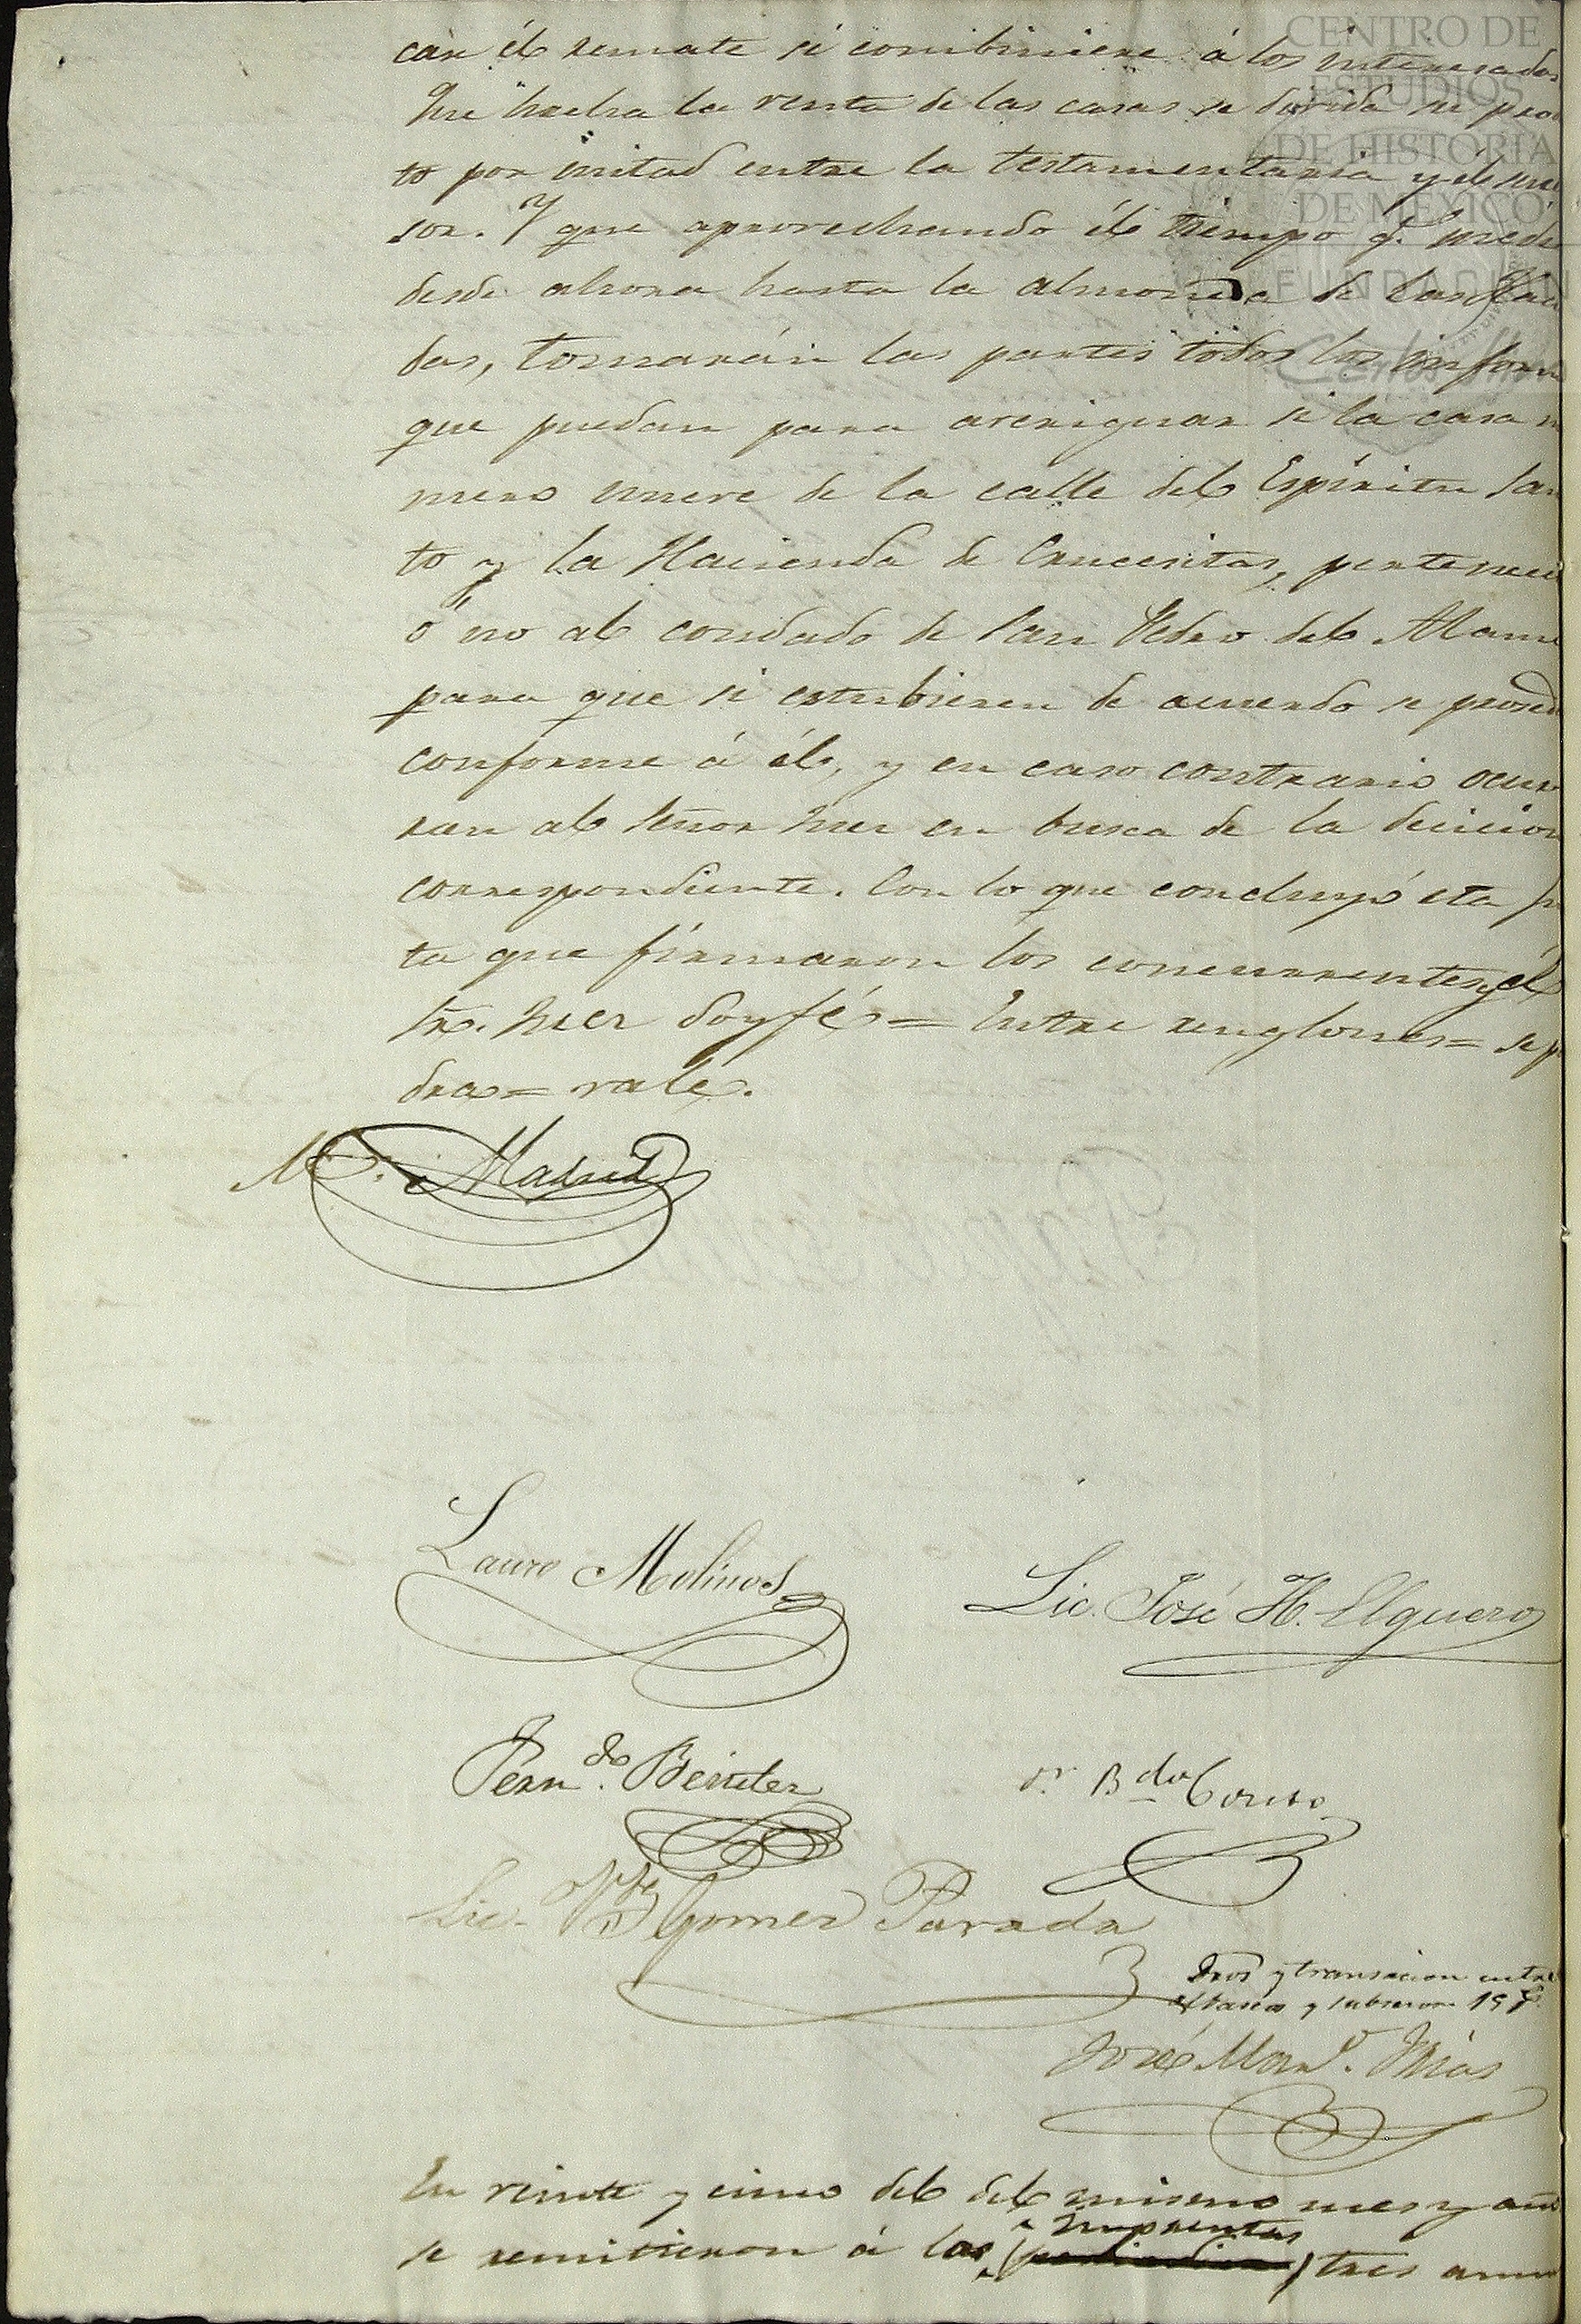 CENTRO DE
ESTUDIOS
DE HISTORIA
DE MEXICO
FUNDACIÓN
car él remate si combiniere á los interesados
Que hecha la venta de las casas se divida su produc
to por mitad entre la testamentaria y él suce
sor. Y que aprovechando él tiempo q.e media
desde ahora hasta la almoneda de las
das, tomarán las partes todos los inform
que puedan para averiguar si la casa nu
mero nueve de la calle del Espíritu San
to y la Hacienda de Crucesitas, pertenece
ó no al condado de San Pedro del Alamo
para que si estubieren de acuerdo se proseda
conforme á él, y en caso contrario ocur
ran al Señor Juez en busca de la decicion
correspondiente. Con lo que concluyó esta jun
ta que firmaron los concurrentes y él
Sr. Juez doy fé = Entre renglones = se po
dra = vale.
M. Madrid
Lauro Molinos
Lic. José H. Elguero
Fern.do Benitez
Dr. B.do Couto
Lic. Gomez Parada
Dros y transacion entre
y subcesor 19
José Mar. Frias
En veinte y cinco del del mismo mes y año
imprentas
se remitieron á las tres anun